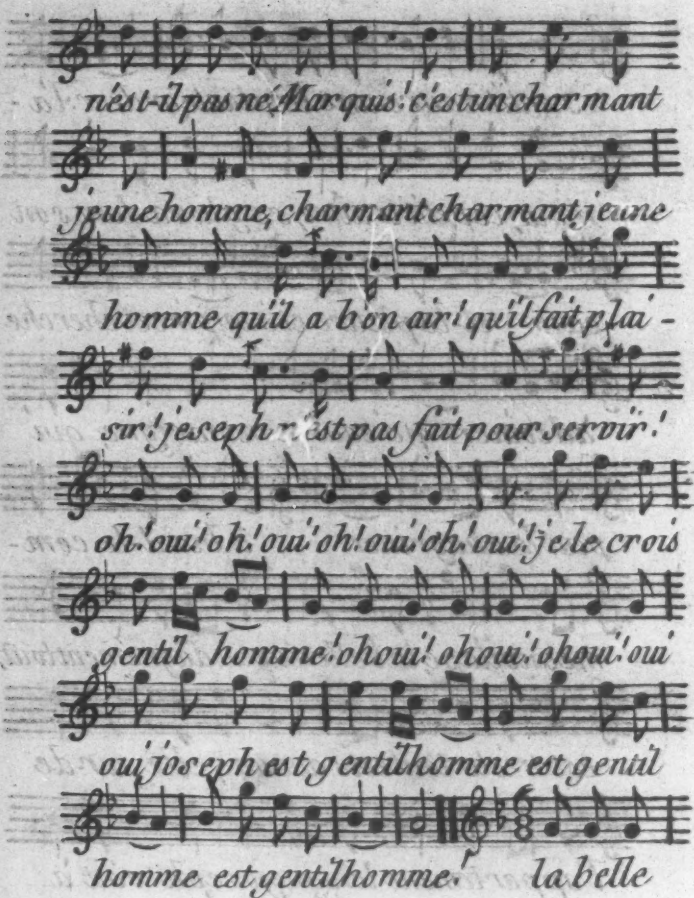 n'est-il pas né Marquis! c'est un charmant
jeune homme, charmant charmant jeune
homme qu'il a bon air! qu'il fait plai-
sir! joseph n'est pas fait pour servir!
oh! oui! oh! oui! oh! oui! oh! oui! je le crois
gentil homme! oh oui! oh oui! oh oui! oui
oui joseph est gentilhomme est gentil
homme est gentilhomme! la belle